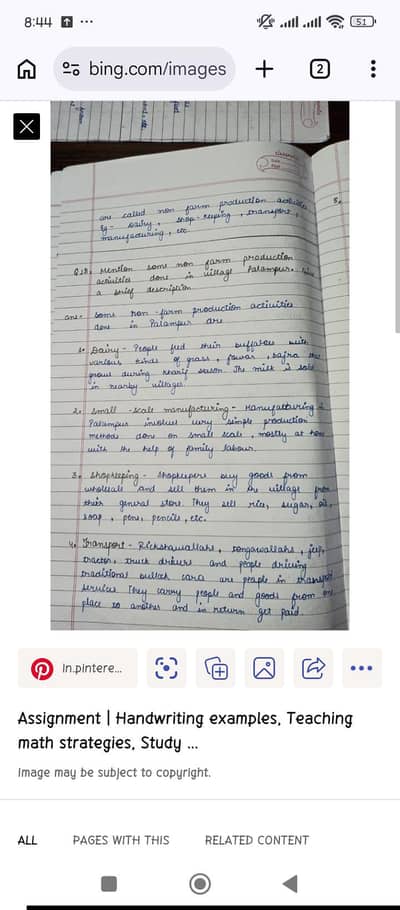 8:44
51
bing.com/images
2
are called non farm production activities
Eg- Dairy, shop-keeping, transport,
manufacturing, etc.
Mention some non farm production
activities done in village Palampur.
a brief description
ans- Some non-farm production activities
done in Palampur are
1. Dairy- People feed their buffalos with
various kinds of grass, jowar, bajra that
grows during kharif season. The milk is sold
in nearby villages.
2. Small-scale manufacturing- Manufacturing in
Palampur involves very simple production
methods done on small scale, mostly at home
with the help of family labour.
3. Shopkeeping- Shopkeepers buy goods from
wholesale and sell them in the village from
their general store. They sell rice, sugar, oil,
soap, pens, pencils, etc.
4. Transport- Rickshawallahs, tongawallahs, jeep,
tractor, truck drivers and people driving
traditional bullock cara are people in transport
services. They carry people and goods from one
place to another and in return get paid.
In.pintere...
Assignment | Handwriting examples, Teaching
math strategies, Study ...
Image may be subject to copyright.
ALL PAGES WITH THIS RELATED CONTENT